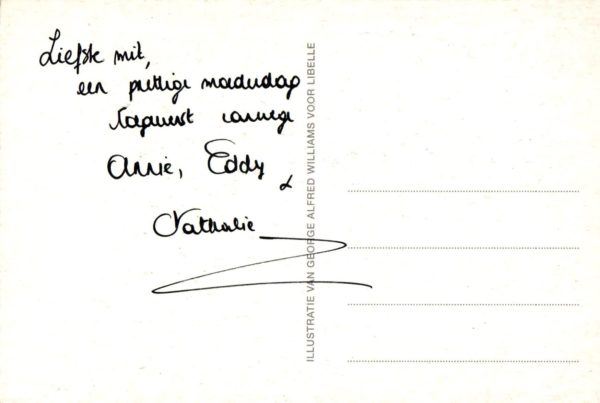 Liefste mit,
een prettige moederdag
toegewenst vanwege
Annie, Eddy
&
Nathalie
ILLUSTRATIE VAN GEORGE ALFRED WILLIAMS VOOR LIBELLE